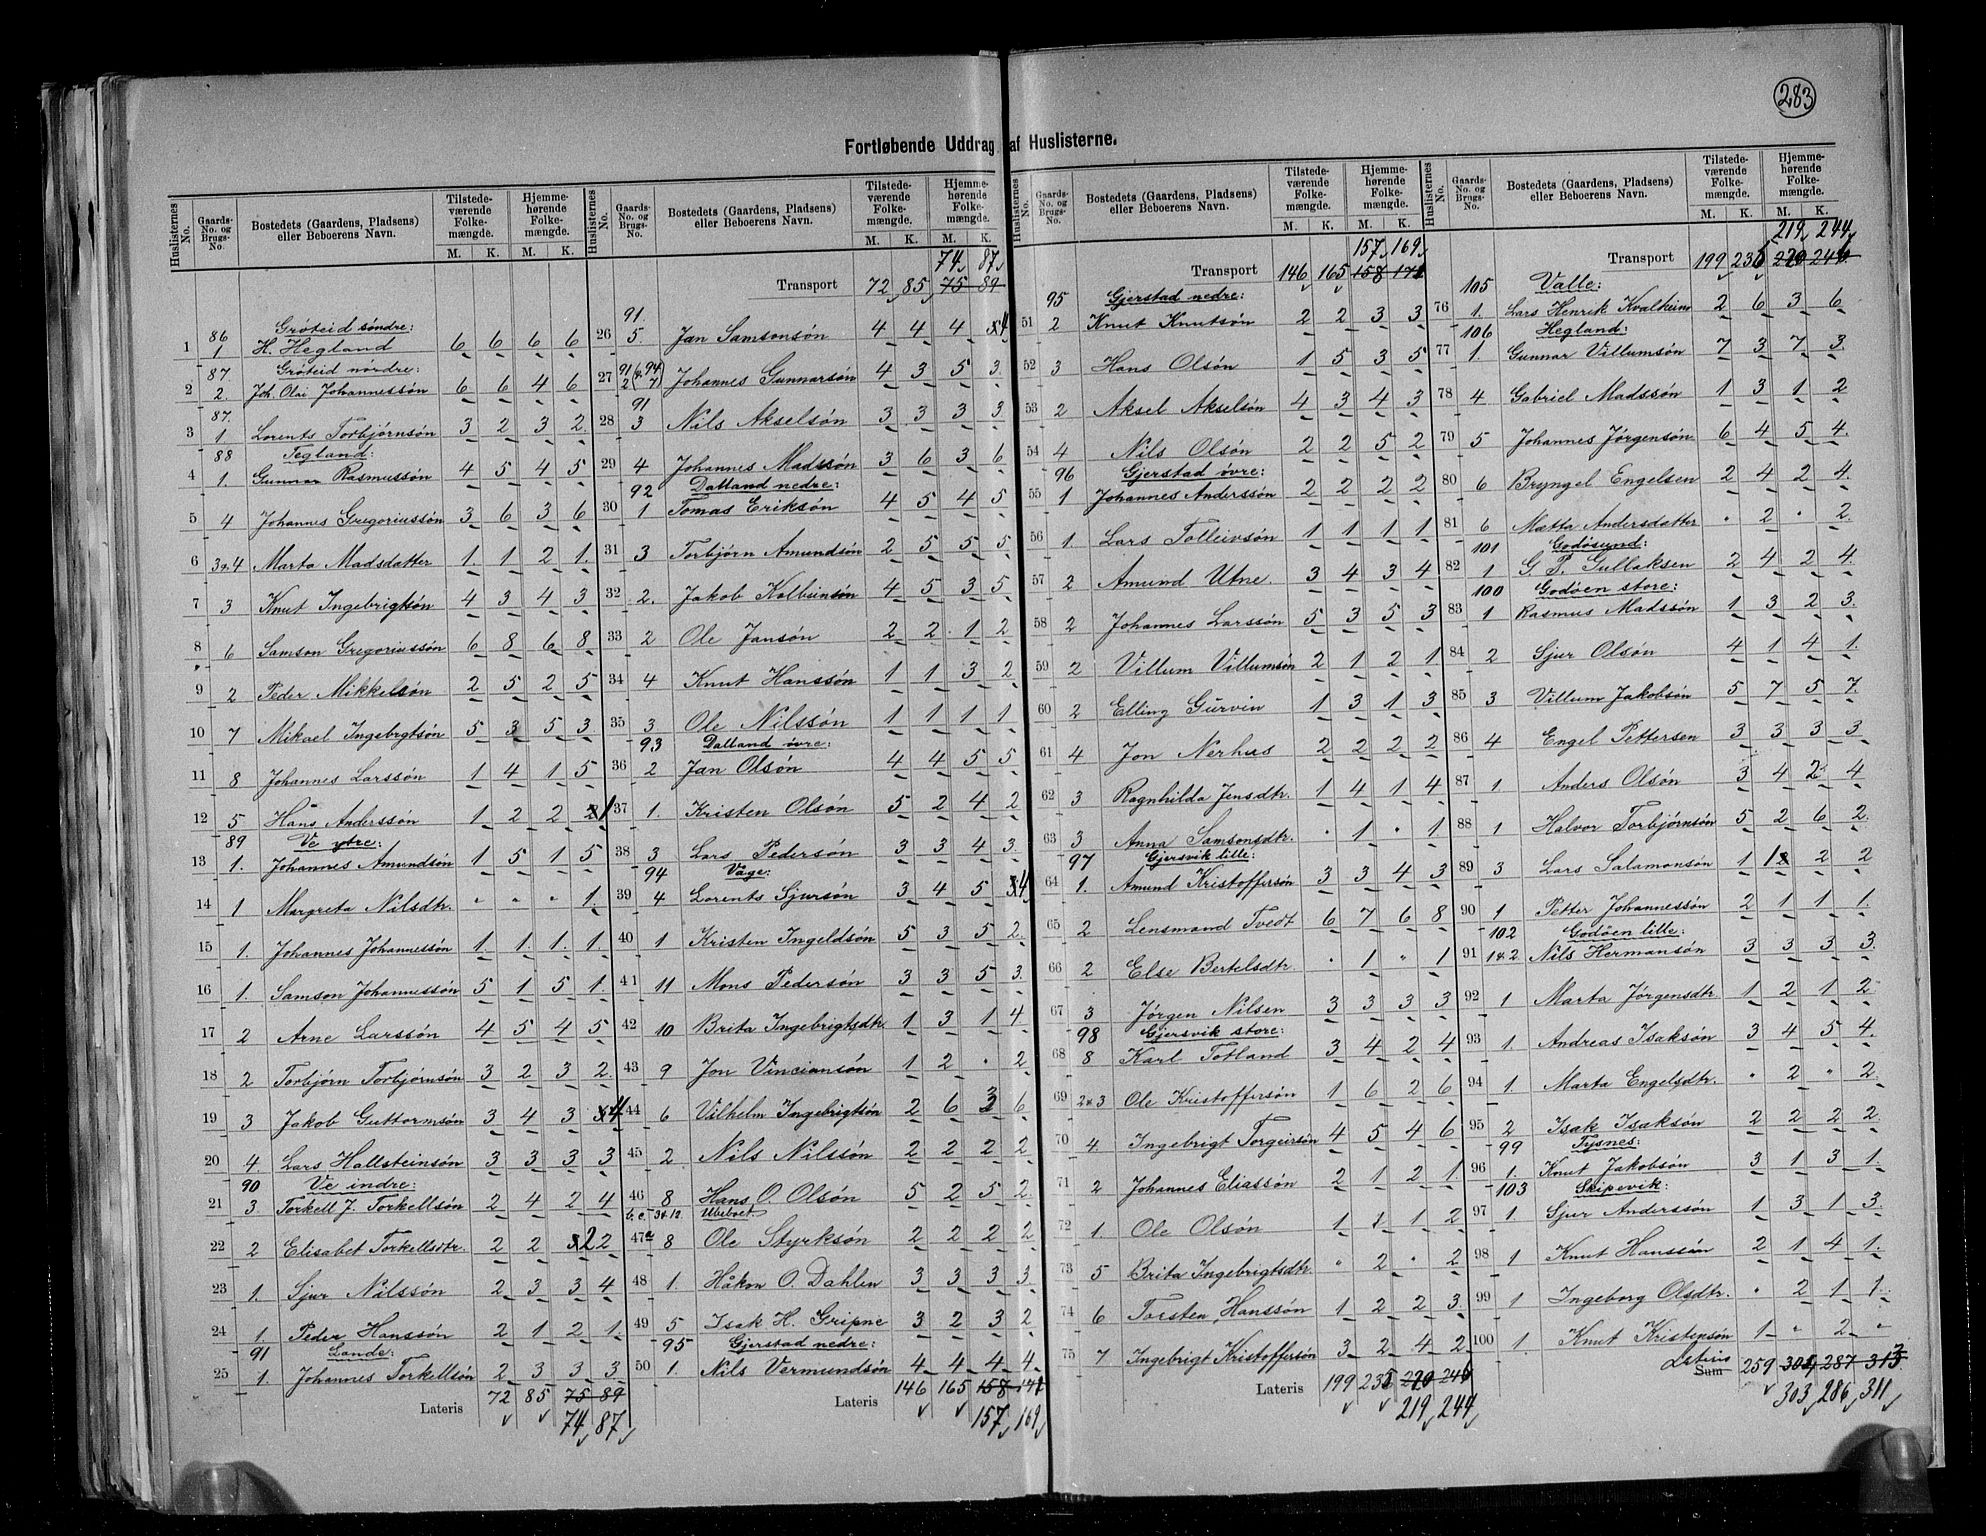 283
Fortløbende Uddrag af Huslisterne.
Huslisternes No. Gaards-No. og Brugs-No. Bostedets (Gaardens, Pladsens) eller Beboerens Navn. Tilstedeværende Folkemængde. M. K. Hjemmehørende Folkemængde. M. K.
86 Gröteid söndre:
1 1 H. Hegland 6 6 6 6
87. Gröteid nördre:
2 2. Joh. Olai Johannessön 6 6 4 6
87.
3 1 Lorents Torbjörnsön 3 2 3 2.
88 Tegland:
4 1. Gunnar Rasmussön 4 5 4 5
5 4 Johannes Gregoriussön 3 6 3 6
6 3&4 Marta Madsdatter 1. 1 2 1.
7 3 Knut Ingebrigtsön 4 3 4 3
8 6 Samson Gregoriussön 6 8 6 8
9 2 Peder Mikkelsön 2 5 2 5
10 7 Mikael Ingebrgtsön 5 3 5 3
11 8 Johannes Larssön 1 4 1 5
12 5 Hans Anderssön 1 2 2 1
89 Ve ytre:
13 1. Johannes Amundsön 1 5 1 5
14 1 Margreta Nilsdtr. " " " 1.
15 1. Johannes Johannessön 1. 1. 1. 1.
16 1. Samson Johannessön 5 1 5 1.
17 2 Arne Larssön 4 5 4 5
18 2 Torbjörn Torbjörnsön 3 2 3 2.
19 3 Jakob Guttormsön 3 4 3 4
20 4 Lars Hallsteinsön 3 3 3 3
90 Ve indre:
21 3. Torkell J. Torkellsön 2 4 2 4
22 2 Elisabet Torkellsdtr. 2 2 2 2
23 1. Sjur Nilssön 2 3 3 4
24 1. Peder Hanssön 2 1 2 1.
91 Lande:
25 1. Johannes Torkellsön 2 3 3 3
Lateris 72 85 75 89
74 87
Huslisternes No. Gaards-No. og Brugs-No. Bostedets (Gaardens, Pladsens) eller Beboerens Navn. Tilstedeværende Folkemængde. M. K. Hjemmehørende Folkemængde. M. K.
74 87
Transport 72 85 75 89
91.
26 5. Jan Samsonsön 4 4 4 4
27 91 2 (& 94 7) Johannes Gunnarsön 4 3 5 3.
91
28 3 Nils Akselsön 3 3 3 3
29 4 Johannes Madssön 3 6 3 6
92 Datland nedre:
30 1 Tomas Eriksön 4 5 4 5
31 3 Torbjörn Amundsön 2 5 5 5
32 2. Jakob Kolbeinson 4 5 3 5
33 2 Ole Jansön 2 2 1 2
34 4 Knut Hanssön 1 1 3 2
35 3 Ole Nilssön 1 1 1 1
93 Datland övre:
36 2 Jan Olsön 4 4 5 5
37 1. Kristen Olsön 5 2 4 2
38 3 Lars Pedersön 3 3 4 3.
94 Våge:
39 4 Lorents Sjursön 3 4 5 4
40 1 Kristen Ingeldsön 5 3 5 2.
41 11 Mons Pedersön 3 3 5 3.
42 10 Brita Ingebrigtsdtr. 1 3 1 4
43 9 Jon Vinciansön 1 2 " 2
44 6 Vilhelm Ingebrigtsön 2 6 3 6
45 2 Nils Nilssön 2 2 2 2
46 8 Hans O. Olsön 5 2 5 2.
b. c. 3&12. Ubeboet
47a 8 Ole Styrkson 2 2 2 2
48 1. Håkon O. Dahlen 3 3 3 3
49 5 Isak H. Gripne 3 2 3 2
95 Gjerstad nedre:
50 1. Nils Vermundsön 4 4 4 4
Lateris 146 165 158 171
157 169
Huslisternes No. Gaards-No. og Brugs-No. Bostedets (Gaardens, Pladsens) eller Beboerens Navn. Tilstedeværende Folkemængde. M. K. Hjemmehørende Folkemængde. M. K.
157 169
Transport 146 165 158 171
95 Gjerstad nedre:
51 2 Knut Knutsön 2 2 3 3
52 3 Hans Olsön 1 5 3 5
53 2 Aksel Akselsön 4 3 4 3
54 4 Nils Olsön 2 2 5 2
96 Gjerstad övre:
55 1 Johannes Anderssön 2 2 2 2
56 1 Lars Tolleivsön 1 1 1 1
57 2 Amund Utne 3 4 3 4
58 2 Johannes Larssön 5 3 5 3
59 2 Villum Villumsön 2 1 2 1
60 2 Elling Gurvin 1 3 1 3
61 4 Jon Nerhus 2 2 2 2
62 3 Ragnhilda Jensdtr. 1 4 1 4
63 3 Anna Samsonsdtr. " 1 " 1
97 Gjersvik lille:
64 1. Amund Kristoffersön 3 3 4 3
65 2 Lensmand Tvedt 6 7 6 8
66 2 Else Bertelsdtr. " 1 " 1
67 3 Jörgen Nilsen 3 3 3 3
98 Gjersvik store:
68 8 Karl Totland 3 4 2 4
69 2&3 Ole Kristoffersön 1 6 2 6
70 4. Ingebrigt Torgeirsön 4 5 4 6
71 2 Johannes Eliassön 2 1 2 1.
72 1. Ole Olsön 1 1 1 2
73 5 Brita Ingebrigtsdtr. " 2 " 2
74 6 Torsten Hanssön 1 2 2 3
75 7 Ingebrigt Kristoffersön 3 2 4 2
Lateris 199 235 220 246
219 244
Huslisternes No. Gaards-No. og Brugs-No. Bostedets (Gaardens, Pladsens) eller Beboerens Navn. Tilstedeværende Folkemængde. M. K. Hjemmehørende Folkemængde. M. K.
219 244
Transport 199 235 220 246
105 Valle:
76 1. Lars Henrik Kvalheim 2 6 3 6
106 Hegland:
77 1 Gunnar Villumsön 7 3 7 3.
78 4 Gabriel Madssön 1 3 1 2
79 5 Johannes Jörgensön 6 4 5 4.
80 6 Bryngel Engelsen 2 4 2 4.
81 6 Mætta Andersdatter " 2 " 2.
101 Godösund:
82 1 G. P. Gullaksen 2 4 2 4.
100 Godöen store:
83 1 Rasmus Madssön 1 3 2 3.
84 2 Sjur Olsön 4 1 4 1.
85 3 Villum Jakobsön 5 7 5 7.
86 4 Engel Pettersen 3 3 3 3
87 1 Anders Olsön 3 4 2 4
88 1 Halvor Torbjörnsön 5 2 6 2.
89 3 Lars Salamonsön 1 1 2 2
90 1 Petter Johannessön 2 1 1 1.
102 Godöen lille:
91 1&2 Nils Hermansön 3 3 3 3.
92 1 Marta Jörgensdtr 1 2 1 2
93 1. Andreas Isaksön 3 4 5 4.
94 1. Marta Engelsdtr. " 2 " 2.
95 2 Isak Isaksön 2 2 2 2.
99 Tysnes:
96 1. Knut Jakobsön 3 1 3 1.
103 Skipevik:
97 1. Sjur Anderssön 1 3 1 3.
98 1 Knut Hanssön 2 1 4 1.
99 1 Ingeborg Olsdtr. " 2 1 1.
100 1. Knut Kristensön 1 " 2 "
Lateris
Sum 259 305 287 313
303 286 311